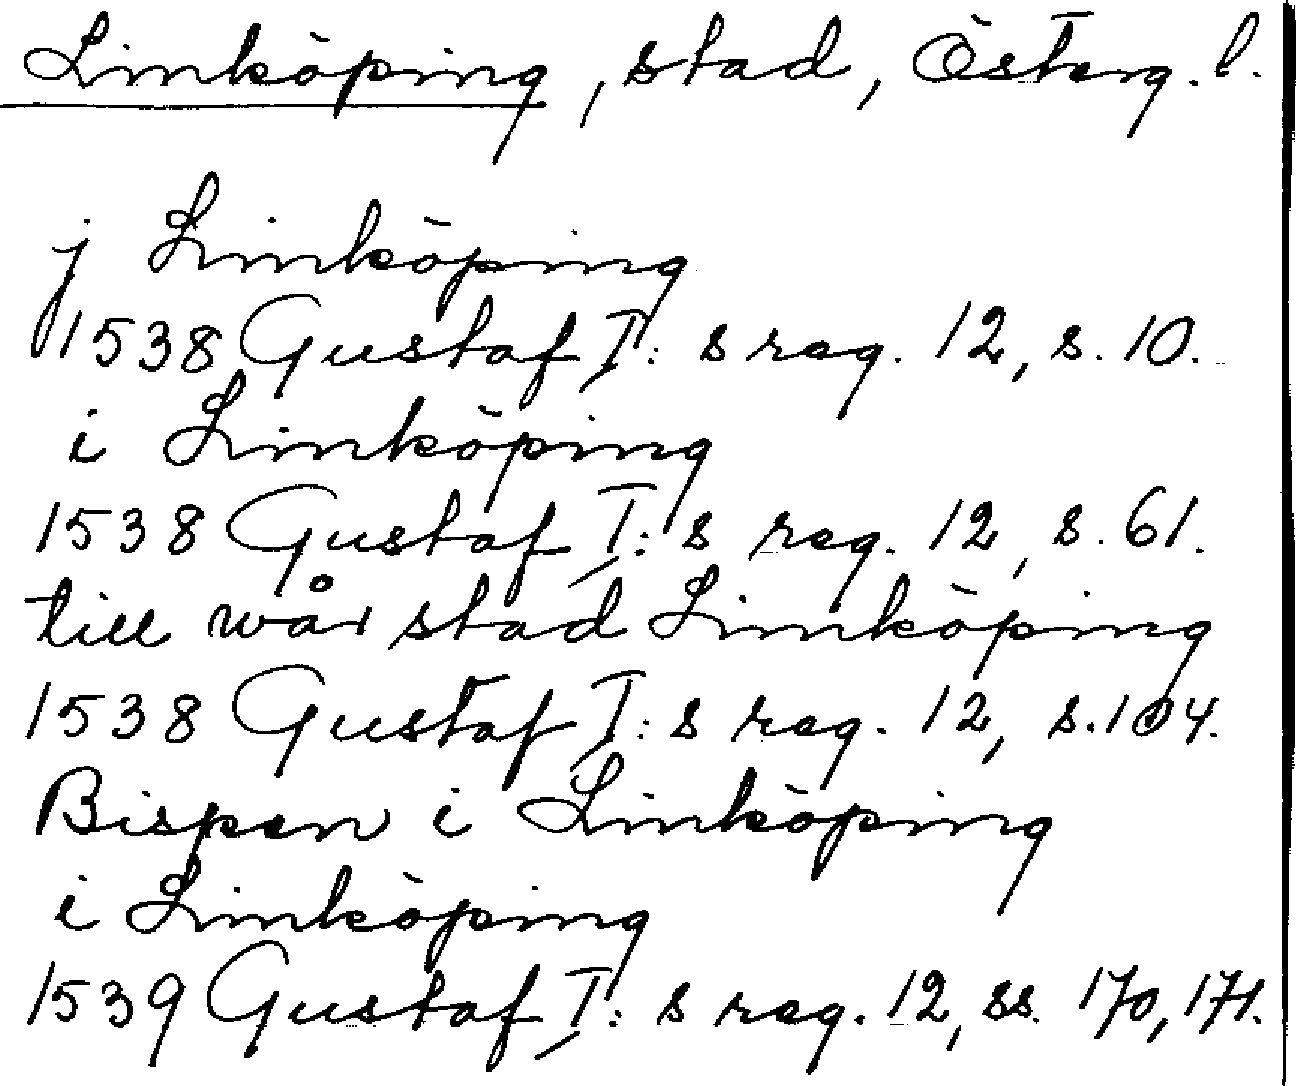 Linköping, stad, Österg. l.
j Linköping
1538 Gustaf I:s reg. 12, s. 10.
i Linköping
1538 Gustaf I:s reg. 12, s. 61.
till wår stad Linköping
1538 Gustaf I:s reg. 12, s. 104.
Bispen i Linköping
i Linköping
1539 Gustaf I:s reg. 12, ss. 170, 171.